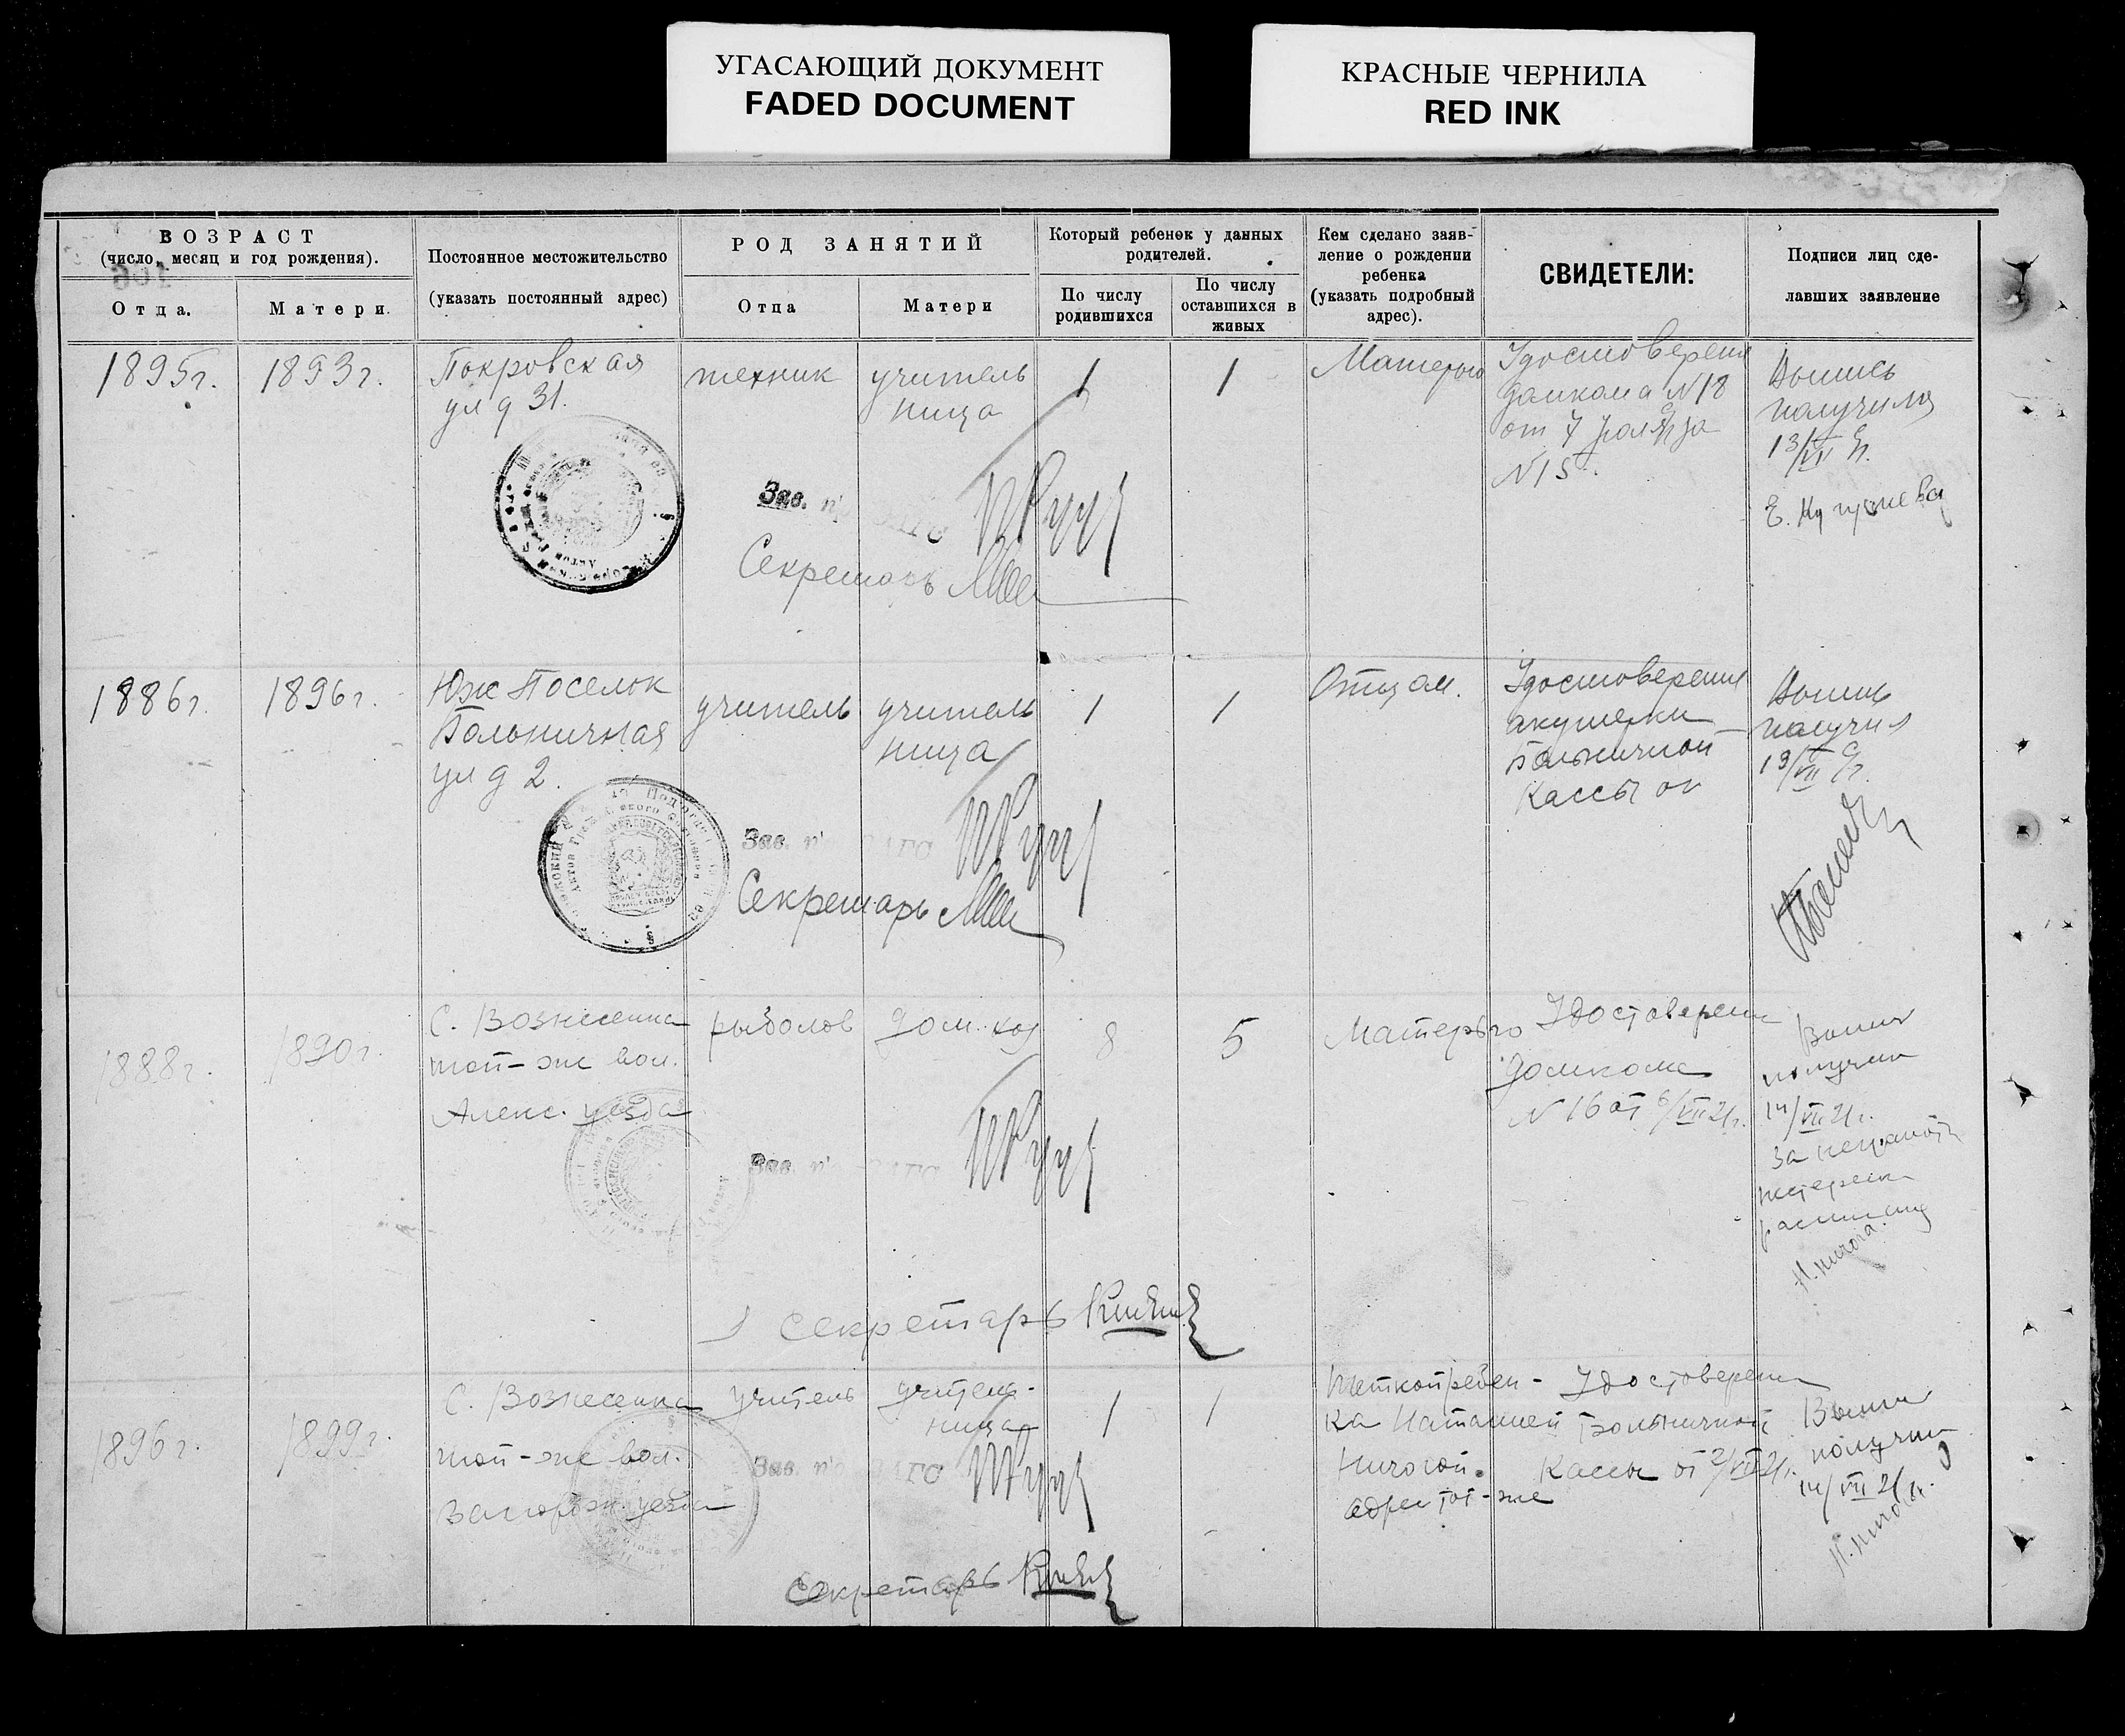 УГАСАЮЩИЙ ДОКУМЕНТ
FADED DOCUMENT
КРАСНЫЕ ЧЕРНИЛА
RED INK
ВОЗРАСТ
(число, месяц и год рождения).
Отца.
Матери.
Постоянное местожительство
(указать постоянный адрес)
РОД ЗАНЯТИЙ
Отца
Матери
Который ребенок у данных
родителей.
По числу
родившихся
По числу
оставшихся в
живых
Кем сделано заяв-
ление о рождении
ребенка
(указать подробный
адрес).
СВИДЕТЕЛИ:
Подписи лиц сде-
лавших заявление
1895г.
1893г.
Покровская
ул д 31.
техник
учитель
ница
1
1
Матерью
Удостоверения
домкома N18
от 7
N15
Выпись
получила
13/VII
Зав.
Секретарь
1886г.
1896г.
Юж Поселок
Больничная
ул д 2.
учитель
учитель
ница
1
1
Отцом.
Удостоверения
акушерки
Больничной
Кассы от
Выпись
получил
13/VII
Зав.
Секретарь
1888г.
1890г.
С. Вознесенка
той-же вол.
Алекс. уезда
рыболов
дом. хоз
8
5
Матерью
Удостоверен
домкома
N 16 от 6/VII 21г.
Выпись
получил
14/VII 21г.
за неграмотн
расписалц
Н. Ничога.
Зав.
Секретарь
1896г.
1899г.
С. Вознесенка
той-же вол.
Запорож. уезда
учитель
учитель-
ница
1
1
Теткой ребен-
ка Наталией
Ничогой.
адрес тот-же
Удостоверен
Больничной
Кассы от 2/VII 21г.
Выпись
получил
14/VII 21г.
Н. Ничога
Зав.
Секретарь